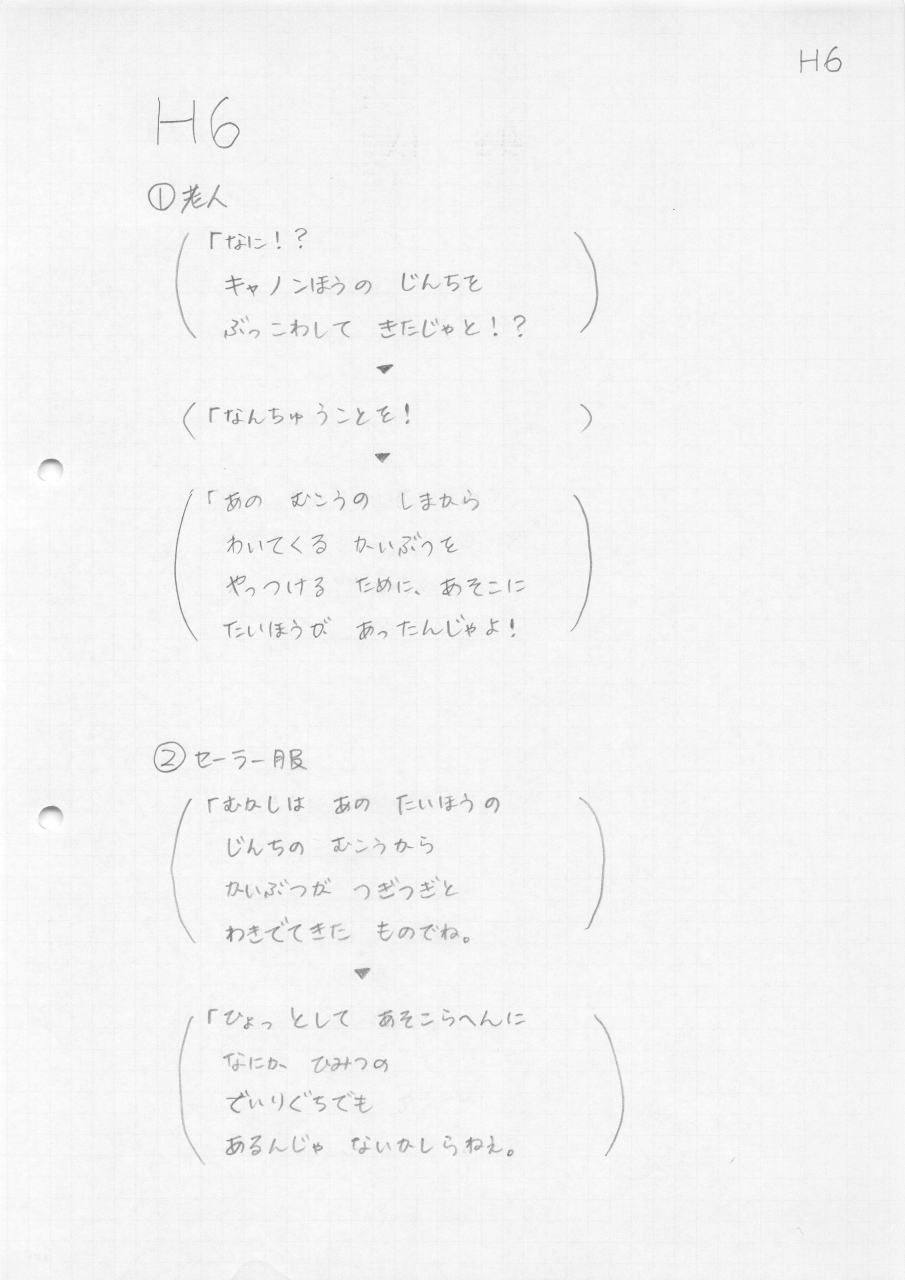 H6
H6
①老人
「なに!?
キャノンほうの じんちを
ぶっこわして きたじゃと!?
▼
「なんちゅうことを!
▼
「あの むこうの しまから
わいてくる かいぶつを
やっつける ために、あそこに
たいほうが あったんじゃよ!
②セーラー服
「むかしは あの たいほうの
じんちの むこうから
かいぶつが つぎつぎと
わきでてきた ものでね。
▼
「ひょっとして あそこらへんに
なにか ひみつの
でいりぐちでも
あるんじゃ ないかしらねえ。